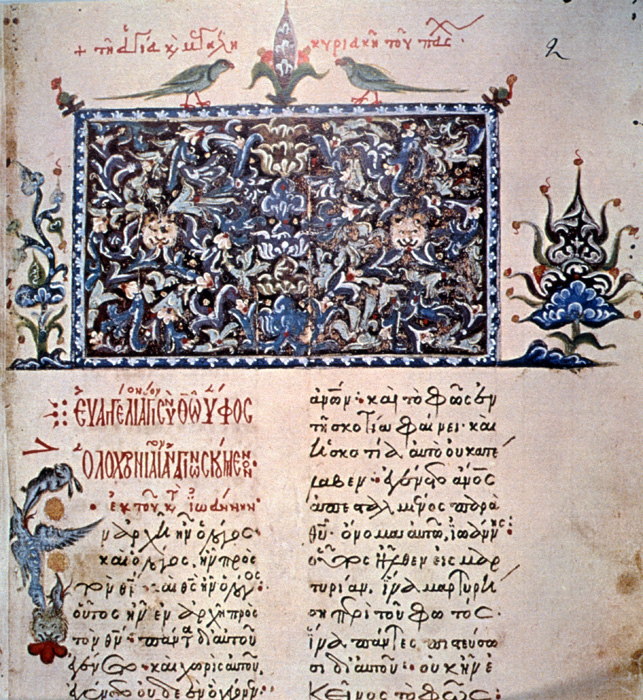 + τῆ ἁγία κ μεγάλη κυριακῆ τοῦ πασχ·
2
ἐκ τοῦ κτ ἰωάννην·
ν ἀρχῆ ἦν ὁ λόγος·
καὶ ὁ λόγος, ἦν πρὸς
τὸν θν· καὶ θς ἦν ὁ λόγος·
οὗτος ἦν ἐν ἀρχῆ πρὸς
τὸν θν· πάντα δι αὐτοῦ
ἐγένετο· καὶ χωρὶς αὐτοῦ,
ἐγένετο οὐδὲ ἓν ὃ γέγονεν
ἀνων· καὶ τὸ φῶς ἐν
τῆ σκοτία φαίνει· καὶ
ἡ σκοτία αὐτὸ οὐ κατέ
λαβεν· ἐγένετο ἄνος
ἀπεσταλμένος παρὰ
θυ· ὄνομα αὐτῶ, ἰωάννης·
οὗτος ἦλθεν εἰς μαρ
τυρίαν, ἵνα μαρτυρή
ση περὶ τοῦ φωτός·
ἵνα πάντες πιστεύσω
σι δι αὐτοῦ· οὐκ ἦν ἐ
κεῖνος τὸ φῶς·